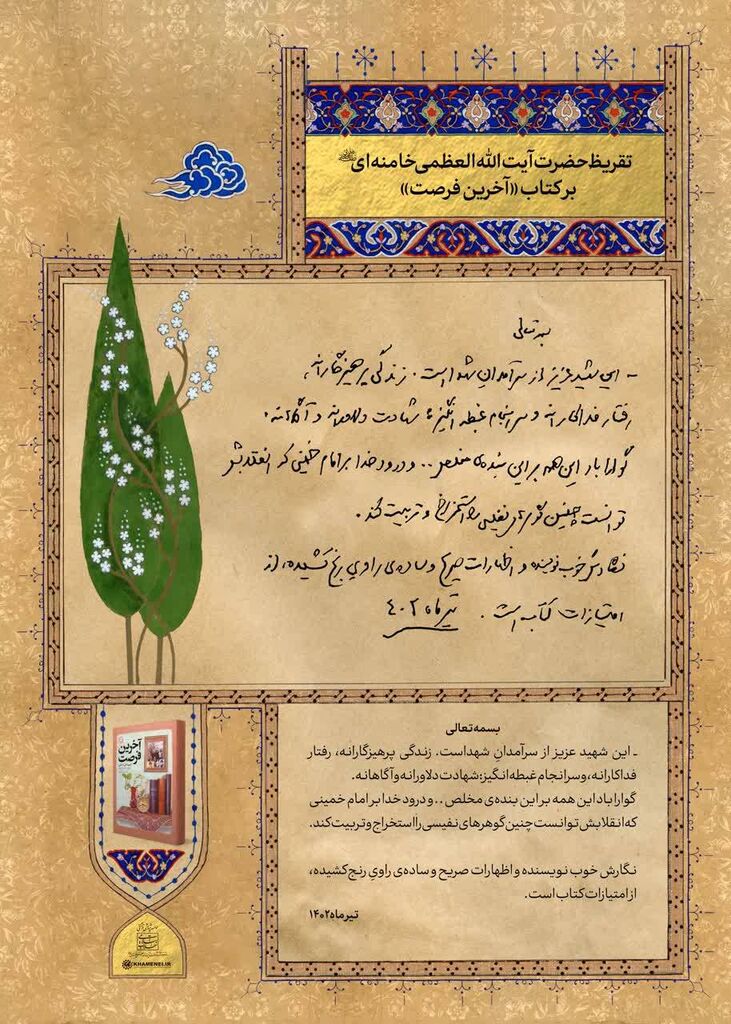 تقریظ حضرت آیت الله العظمی خامنه ای
بر کتاب ((آخرین فرصت))
بسمه تعالی
- این شهید عزیز از سرآمدان شهدا است. زندگی پرهیزگارانه،
رفتار فداکارانه و سرانجام غبطه انگیز؛ شهادت دلاورانه و آگاهانه.
گوارا باد این همه بر این بنده‌ی مخلص .. و درود خدا بر امام خمینی که انقلابش
توانست چنین گوهرهای نفیسی را استخراج و تربیت کند.
نگارش خوب نویسنده و اظهارات صریح و ساده‌ی راوی رنج کشیده، از
امتیازات کتاب است. تیرماه ۴۰۲
بسمه تعالی
- این شهید عزیز از سرآمدانِ شهداست. زندگی پرهیزگارانه، رفتار
فداکارانه، و سرانجام غبطه انگیز؛ شهادت دلاورانه و آگاهانه.
گوارا باد این همه بر این بنده‌ی مخلص .. و درود خدا بر امام خمینی
که انقلابش توانست چنین گوهرهای نفیسی را استخراج و تربیت کند.
نگارش خوب نویسنده و اظهارات صریح و ساده‌ی راویِ رنج کشیده،
از امتیازات کتاب است.
تیرماه ۱۴۰۲
آخرین
فرصت
KHAMENEI.IR